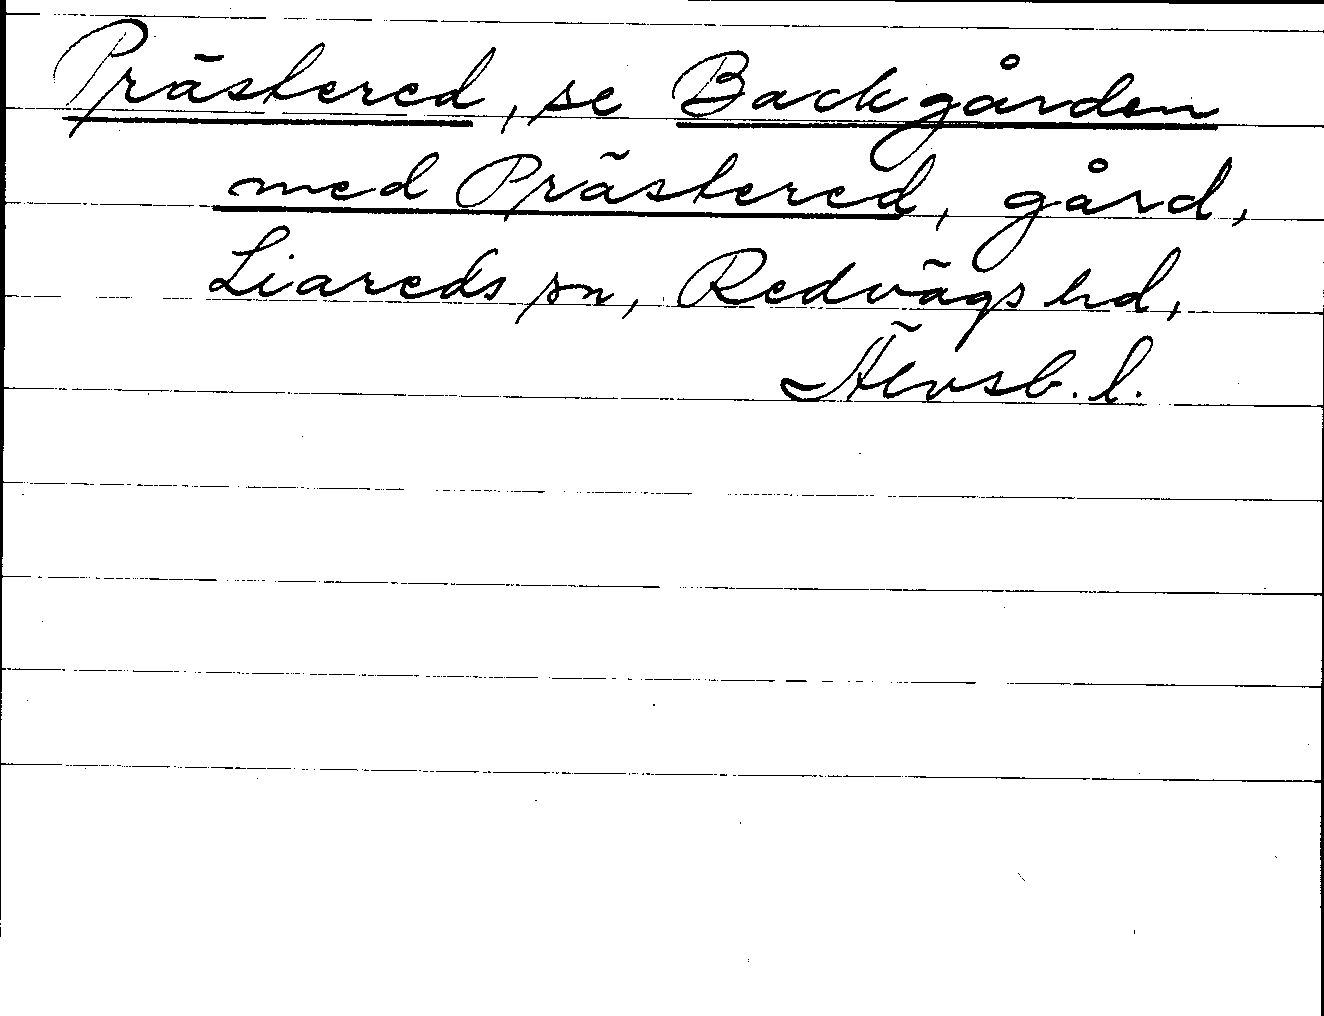 Prästered, se Backgården
med Prästered, gård,
Liareds sn, Redvägs hd,
Älvsb. l.